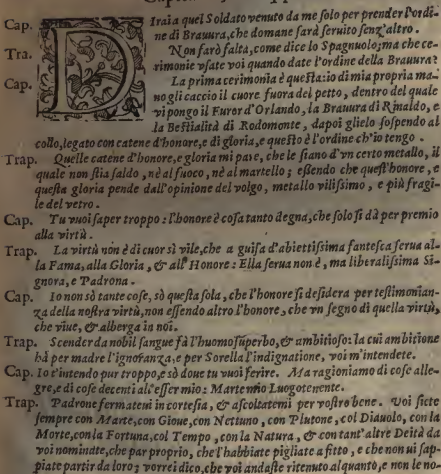 Cap. DIraia quel Soldato venuto da me solo per prender l'ordi-
ne di Brauura, che domane sarà seruito senz'altro.
Tra. Non farò falta, come dice lo Spagnuolo; ma che ce-
rimonie vsate voi quando date l'ordine della Brauura?
Cap. La prima cerimonia è questa: io di mia propria ma-
no gli caccio il cuore fuora del petto, dentro del quale
vi pongo il Furor d'Orlando, la Brauura di Rinaldo, e
la Bestialità di Rodomonte, dapoi glielo sospendo al
collo, legato con catene d'honore, e di gloria, e questo è l'ordine ch'io tengo.
Trap. Quelle catene d'honore, e gloria mi pare, che le siano d'vn certo metallo, il
quale non stia saldo, nè al fuoco, nè al martello; essendo che quest'honore, e
questa gloria pende dall'opinione del volgo, metallo vilissimo, e più fragi-
le del vetro.
Cap. Tu vuoi saper troppo: l'honore è cosa tanto degna, che solo si dà per premio
alla virtù.
Trap. La virtù non è di cuor sì vile, che a guisa d'abiettissima fantesca serua al-
la Fama, alla Gloria, & all'Honore: Ella serua non è, ma liberalissima Si-
gnora, e Padrona.
Cap. Io non sò tante cose, sò questa sola, che l'honore si desidera per testimonian-
za della nostra virtù, non essendo altro l'honore, che vn segno di quella virtù,
che viue, & alberga in noi.
Trap. Scender da nobil sangue fà l'huomo superbo, & ambitioso: la cui ambitione
hà per madre l'ignoranza, e per Sorella l'indignatione, voi m'intendete.
Cap. Io t'intendo pur troppo, e sò doue tu vuoi ferire. Ma ragioniamo di cose alle-
gre, e di cose decenti all'esser mio: Marte mio Luogotenente.
Trap. Padrone fermateui in cortesia, & ascoltatemi per vostro bene. Voi siete
sempre con Marte, con Gioue, con Nettuno, con Plutone, col Diauolo, con la
Morte, con la Fortuna, col Tempo, con la Natura, & con tant'altre Deità da
voi nominate, che par proprio, che l'habbiate pigliate a fitto, e che non vi sap-
piate partir da loro; vorrei dico, che voi andaste ritenuto alquanto, e non le no-